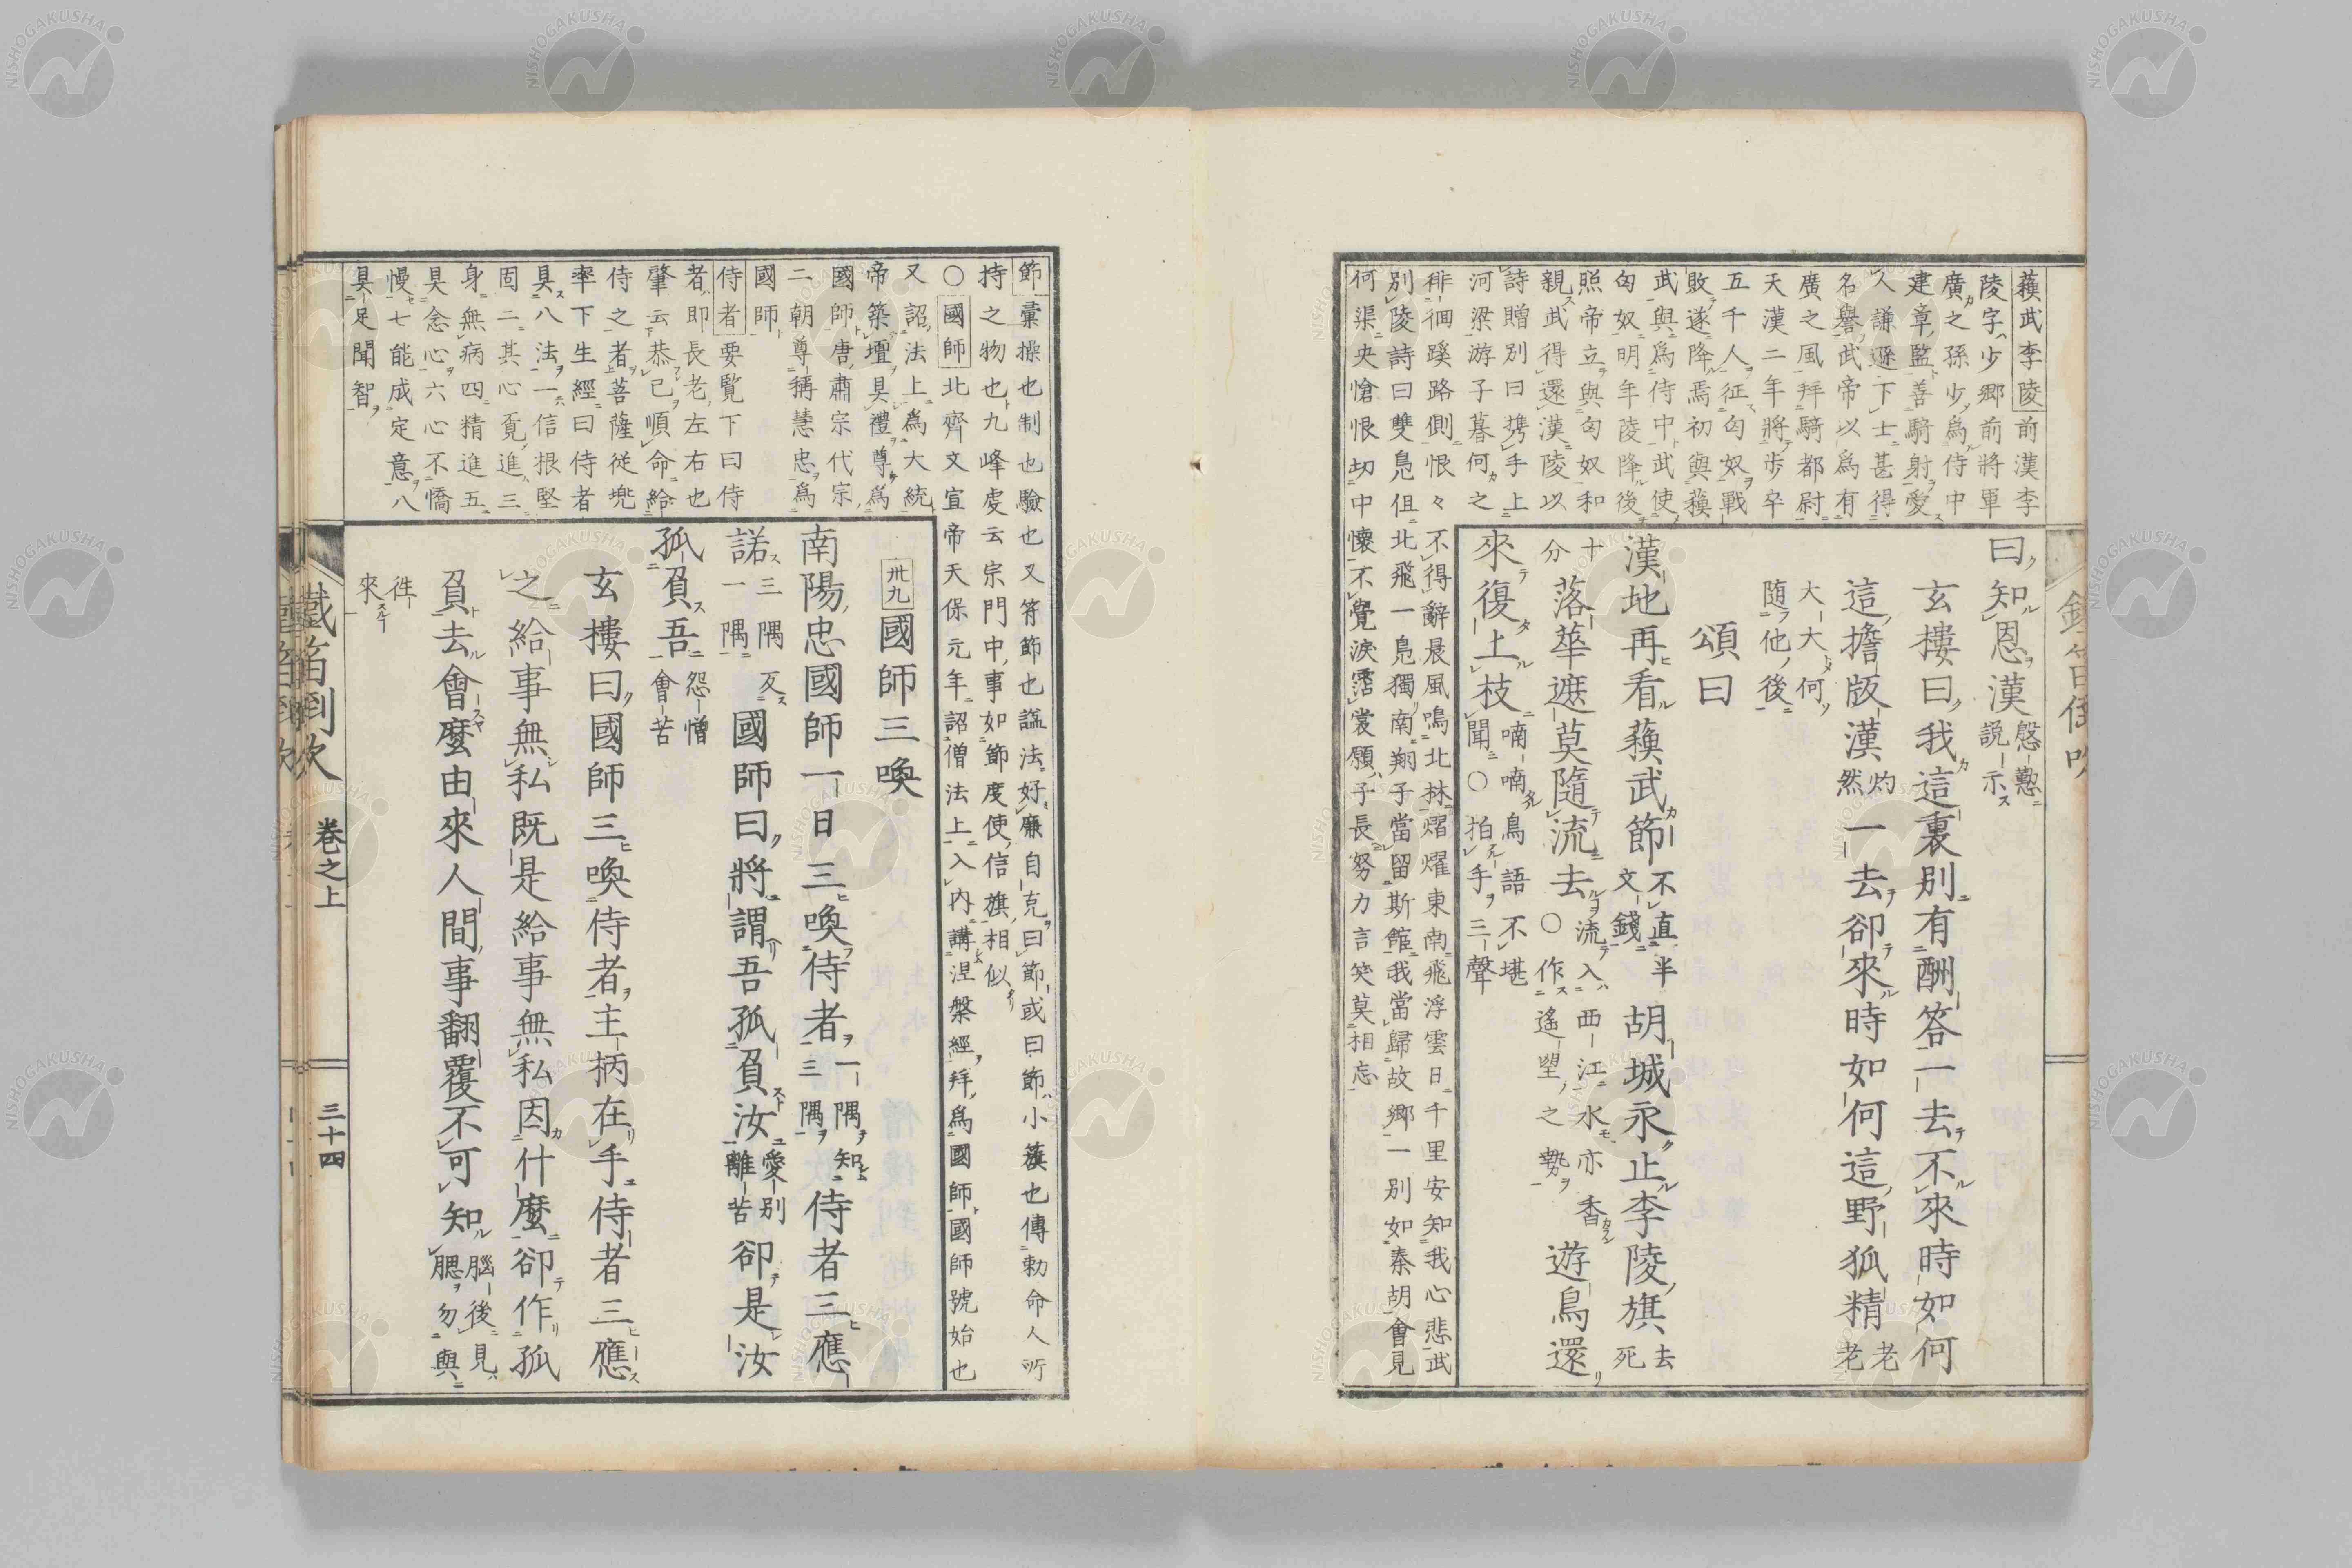 蘓武李陵前漢李
陵字少郷前將軍
廣之孫少爲侍中
建章監善騎射愛
人謙遜下士甚得
名譽武帝以爲有
廣之風拜騎都尉
天漢二年將歩卒
五千人征匈奴戰
敗遂降焉初與蘓
武與爲侍中武使
匈奴明年陵降後
照帝立與匈奴和
親武得還漢陵以
詩贈別曰携手上
河梁游子暮何之
徘徊蹊路側恨々不得辭晨風鳴北林熠燿東南飛浮雲日千里安知我心悲武
別陵詩曰雙鳧俱北飛一鳧獨南翔子當留斯館我當歸故郷一別如秦胡會見
何渠央愴恨切中懷不覺淚霑裳願子長努力言笑莫相忘
曰知恩漢慇懃說示
玄摟曰我這裏別有酬答一去不來時如何
這擔版漢灼然一去卻來時如何這野狐精老老
大大何随他後
頌曰
漢地再看蘓武節不直半文錢胡城永止李陵旗去死
十分落華遮莫隨流去○流入西江水亦香作遙望之勢遊鳥還
來復上枝喃喃鳥語不堪聞○拍手三聲
節彙操也制也驗也又符節也謚法好廉自克曰節或曰節小籏也傳勅命人所
持之物也九峰虔云宗門中事如節度使信旗相似
○國師北齊文宣帝天保元年詔僧法上入内講涅槃經拜爲國師國師號始也
又詔法上爲大統
帝築壇具禮尊爲
國師唐肅宗代宗
二朝尊稱慧忠爲
國師
侍者要覧下曰侍
者即長老左右也
肇云恭己順命給
侍之者菩薩從兜
率下生經曰侍者
具八法一信根堅
固二其心覔進三
身無病四精進五
具念心六心不憍
慢七能成定意八
具足聞智
卅九國師三喚
南陽忠國師一日三喚侍者一隅知三隅侍者三應
諾三隅反一隅國師曰將謂吾孤負汝愛別離苦卻是汝
孤負吾怨憎會苦
玄摟曰國師三喚侍者主柄在手侍者三應
之給事無私既是給事無私因什麼卻作孤
負去會麼由來人間事翻覆不可知腦後見腮勿與
徃來
鐵笛倒吹
卷之上
三十四
NISHOGAKUSHA